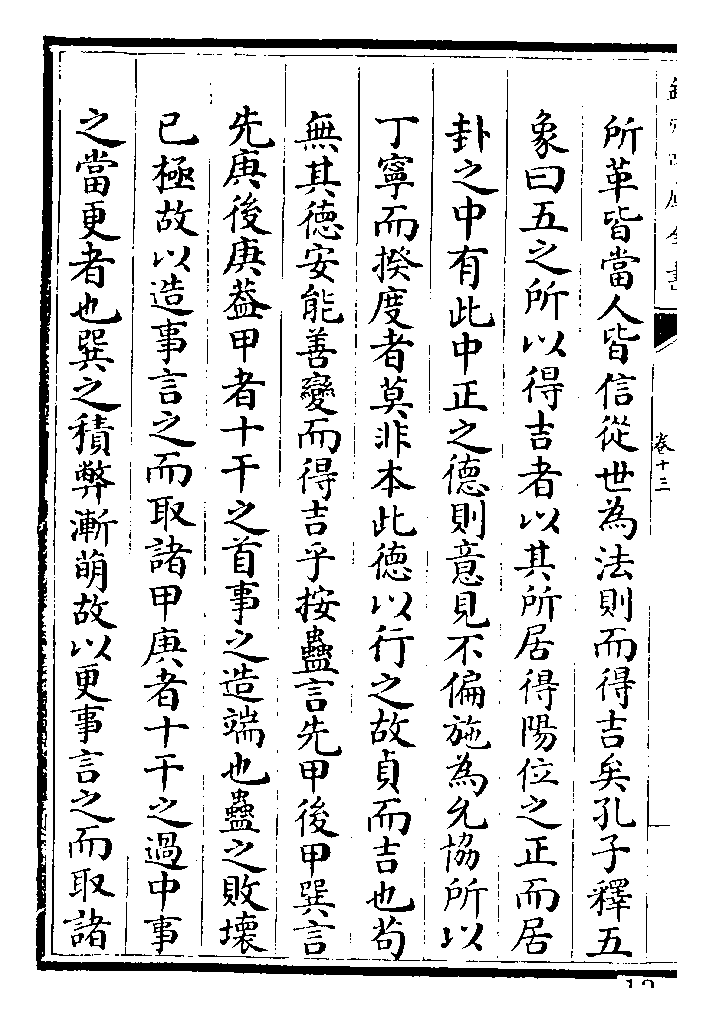 欽定四庫全書
卷十三
所革皆當人皆信從世為法則而得吉矣孔子釋五
象曰五之所以得吉者以其所居得陽位之正而居
卦之中有此中正之德則意見不偏施為允協所以
丁寧而揆度者莫非本此德以行之故貞而吉也茍
無其德安能善變而得吉乎按蠱言先甲後甲巽言
先庚後庚葢甲者十干之首事之造端也蠱之敗壞
已極故以造事言之而取諸甲庚者十干之過中事
之當更者也巽之積弊漸萌故以更事言之而取諸